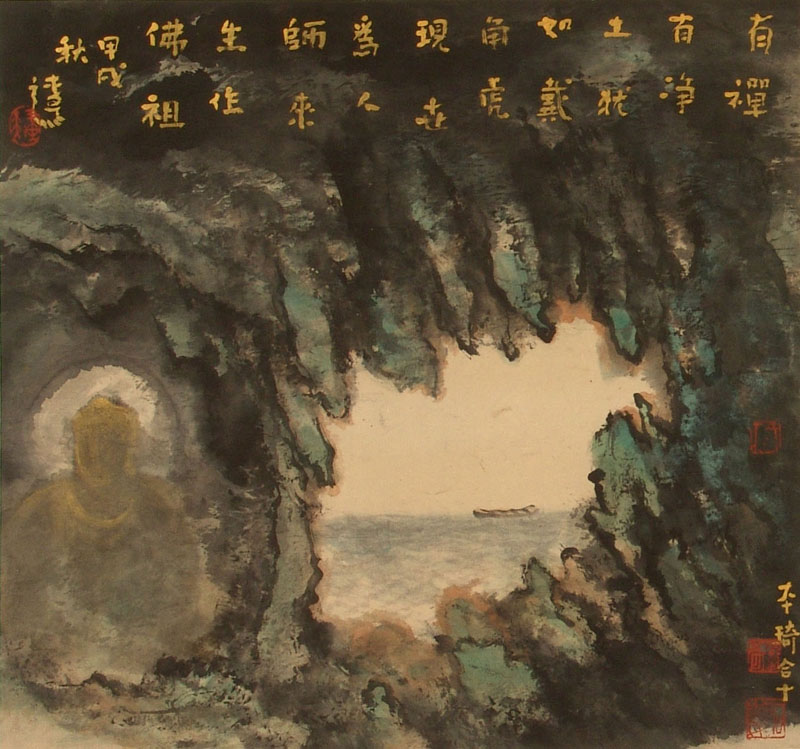 有禪
有淨
土猶
如戴
角虎
現世
為人
師來
生作
佛祖
甲戌
秋
本琦合十